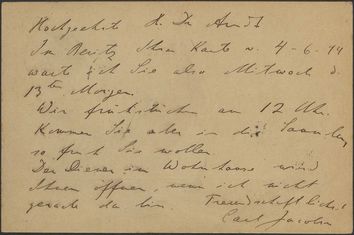 Hochgeehrt H. Dr Arndt
Im Besitz Ihrer Karte v. 4-6-94
warte ich Sie also Mittwoch d.
13ten Morgen.
Wir frühstücken um 12 Uhr.
Kommen Sie aber in die Sammlung
so früh Sie wollen.
Der Diener im Wohnhause wird
Ihnen öffnen, wenn ich nicht
gerade da bin. Freundschaftlichst
Carl Jacobsen